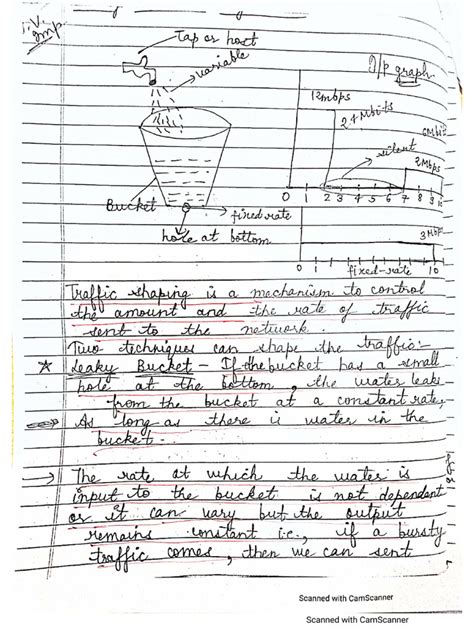 I.V.
Imp
Tap or host
variable
I/p graph
12mbps
24 Mbits
silent
2Mbps
Bucket
fixed rate
hole at bottom
0 1 2 3 4 5 6 7 8 9
3Mbps
0 1 fixed-rate 10
Traffic shaping is a mechanism to control
the amount and the rate of traffic
sent to the network.
Two techniques can shape the traffic:-
Leaky Bucket - If the bucket has a small
hole at the bottom, the water leaks
from the bucket at a constant rate,
As long as there is water in the
bucket.
The rate at which the water is
input to the bucket is not dependant
or it can vary but the output
remains constant i.e., if a bursty
traffic comes, then we can sent
Scanned with CamScanner
Scanned with CamScanner